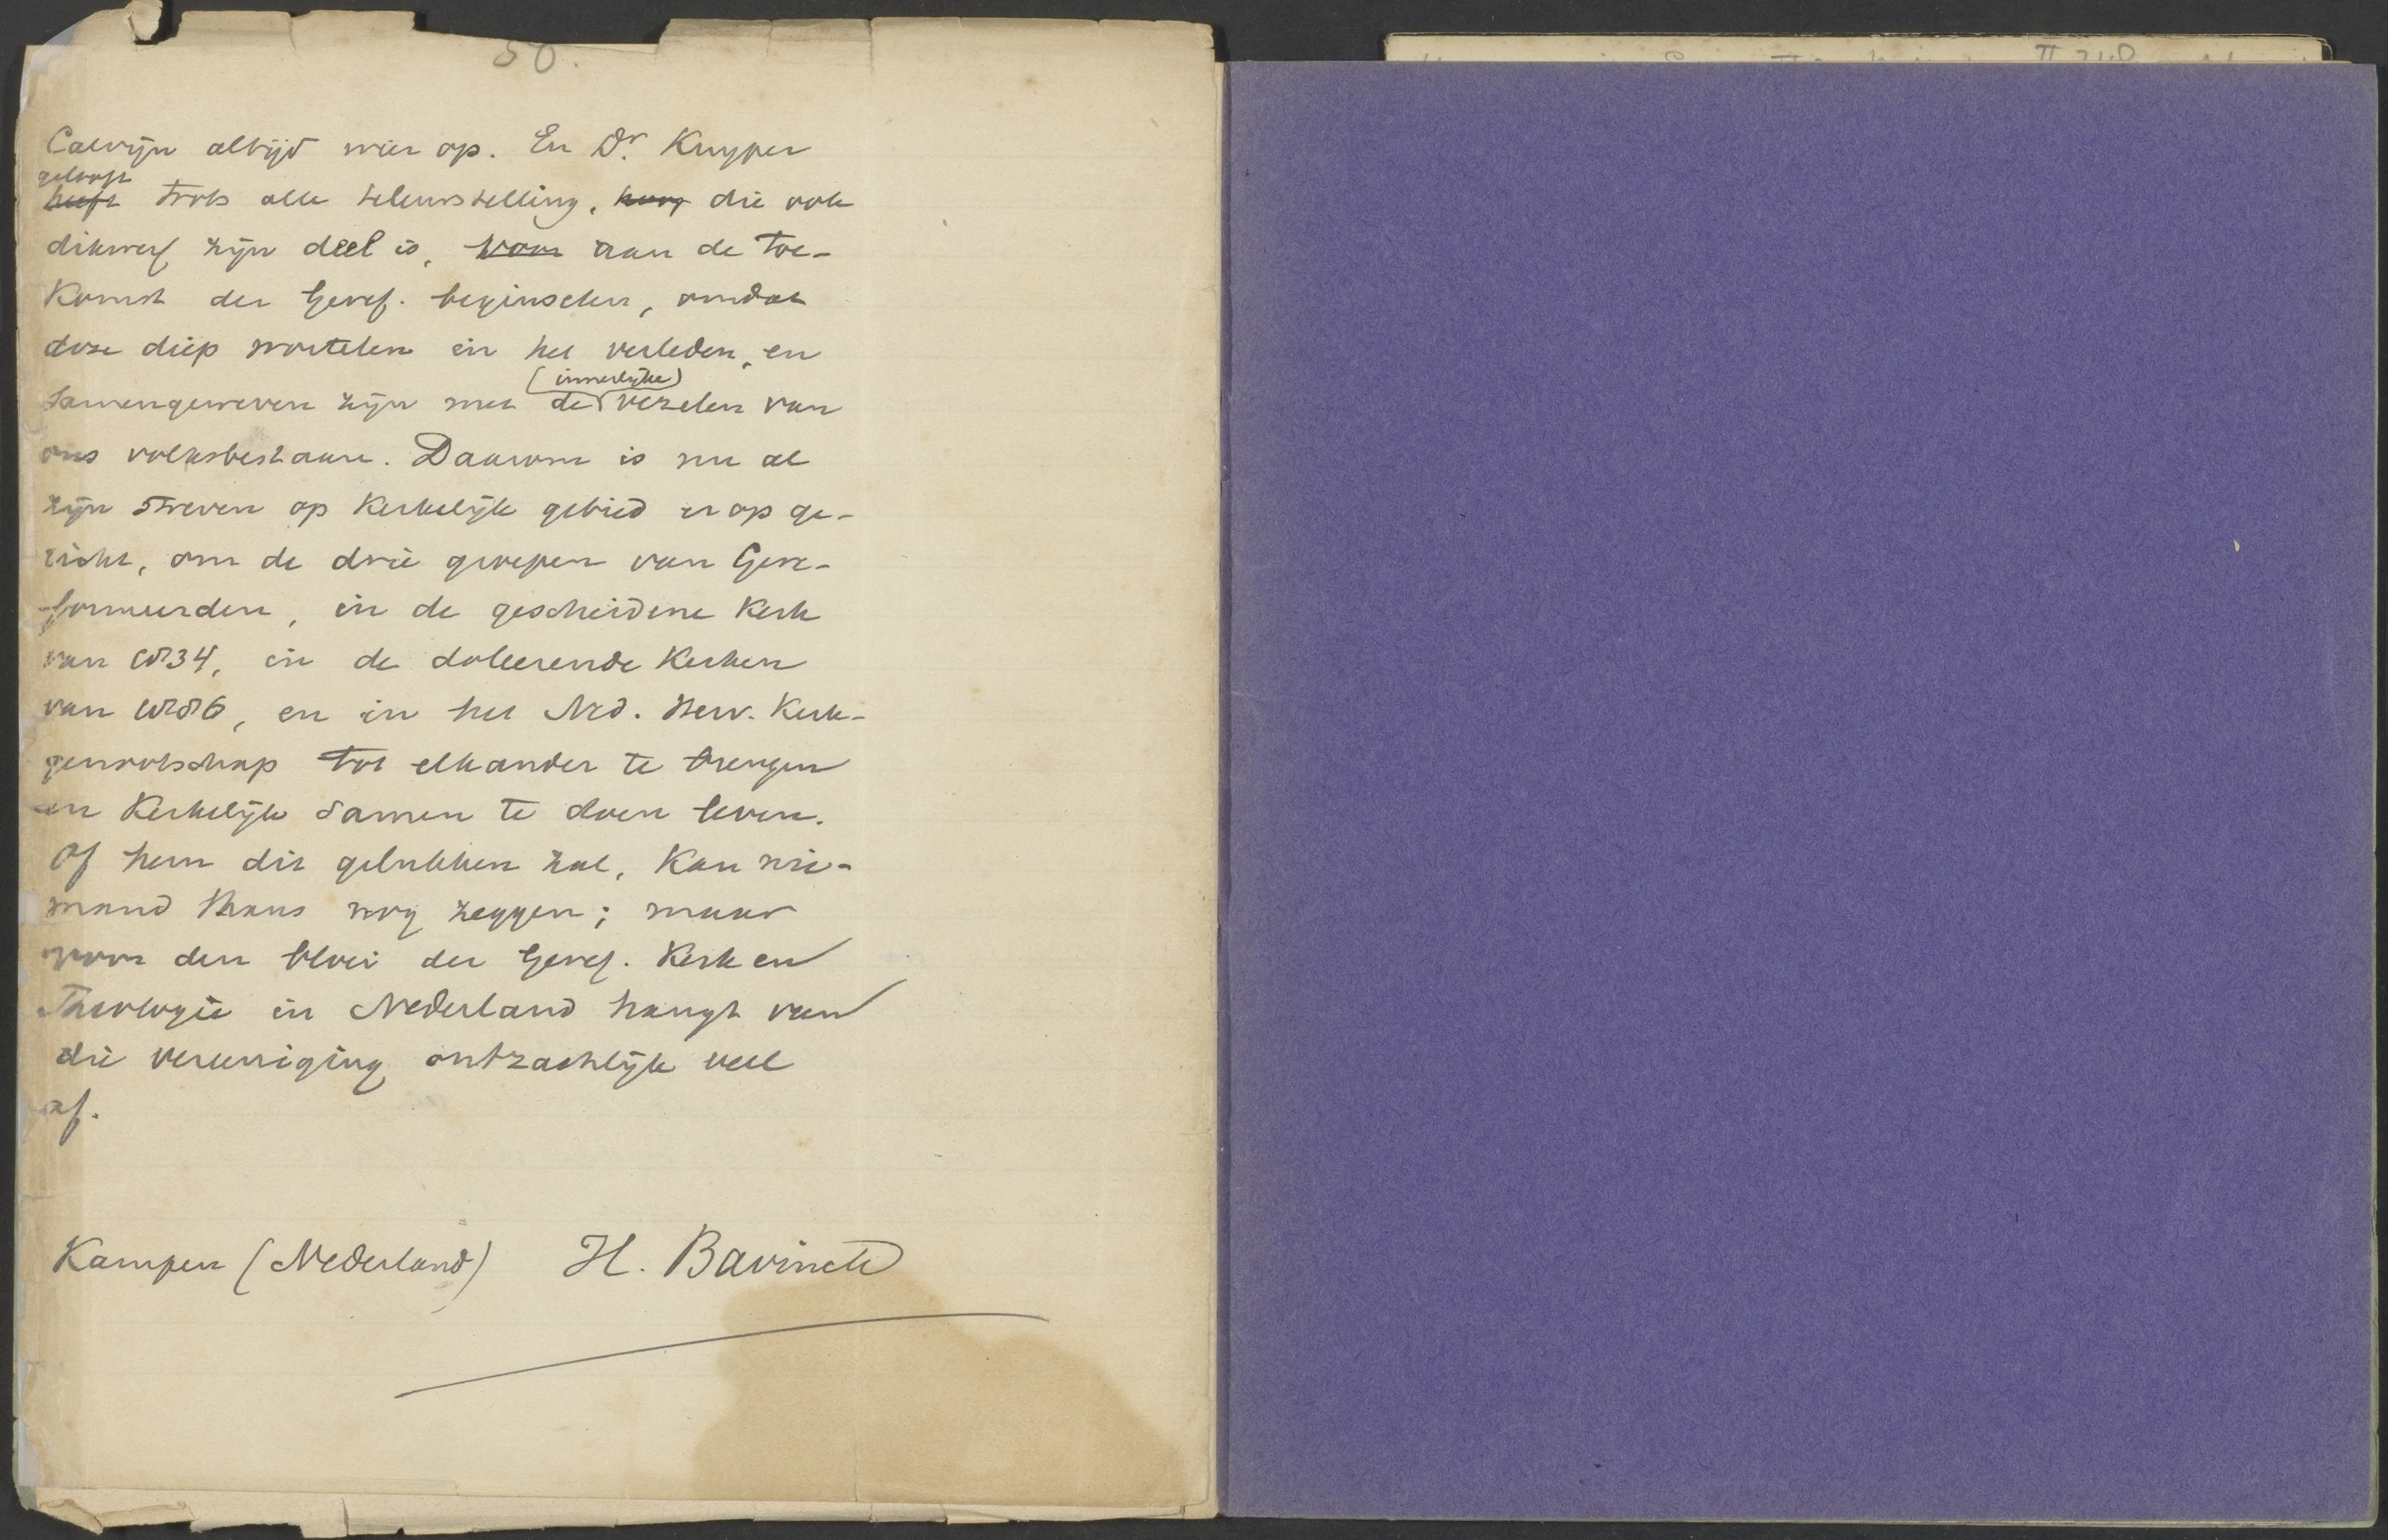 50.
Calvijn altijd weer op. En Dr. Kuyper
gelooft
heeft trots alle teleurstelling, hoop die ook
dikwerf zijn deel is, voor aan de toe-
Komst der Geref. beginselen, omdat
deze diep wortelen in het verleden, en
(innerlijke)
samengeweven zijn met de vezelen van
ons volksbestaan. Daarom is nu al
zijn streven op Kerkelijk gebied er op ge-
richt, om de drie groepen van Gere-
formeerden, in de gescheidene Kerk
van 1834, in de doleerende Kerken
van 1886, en in het Ned. Herv. Kerk-
genootschap tot elkander te brengen
en Kerkelijk samen te doen leven.
Of hem dit gelukken zal, Kan nie-
mand thans nog zeggen; maar
voor den bloei der Geref. Kerk en
Theologie in Nederland hangt van
die vereeniging ontzachlijk veel
af.
Kampen (Nederland) H. Bavinck